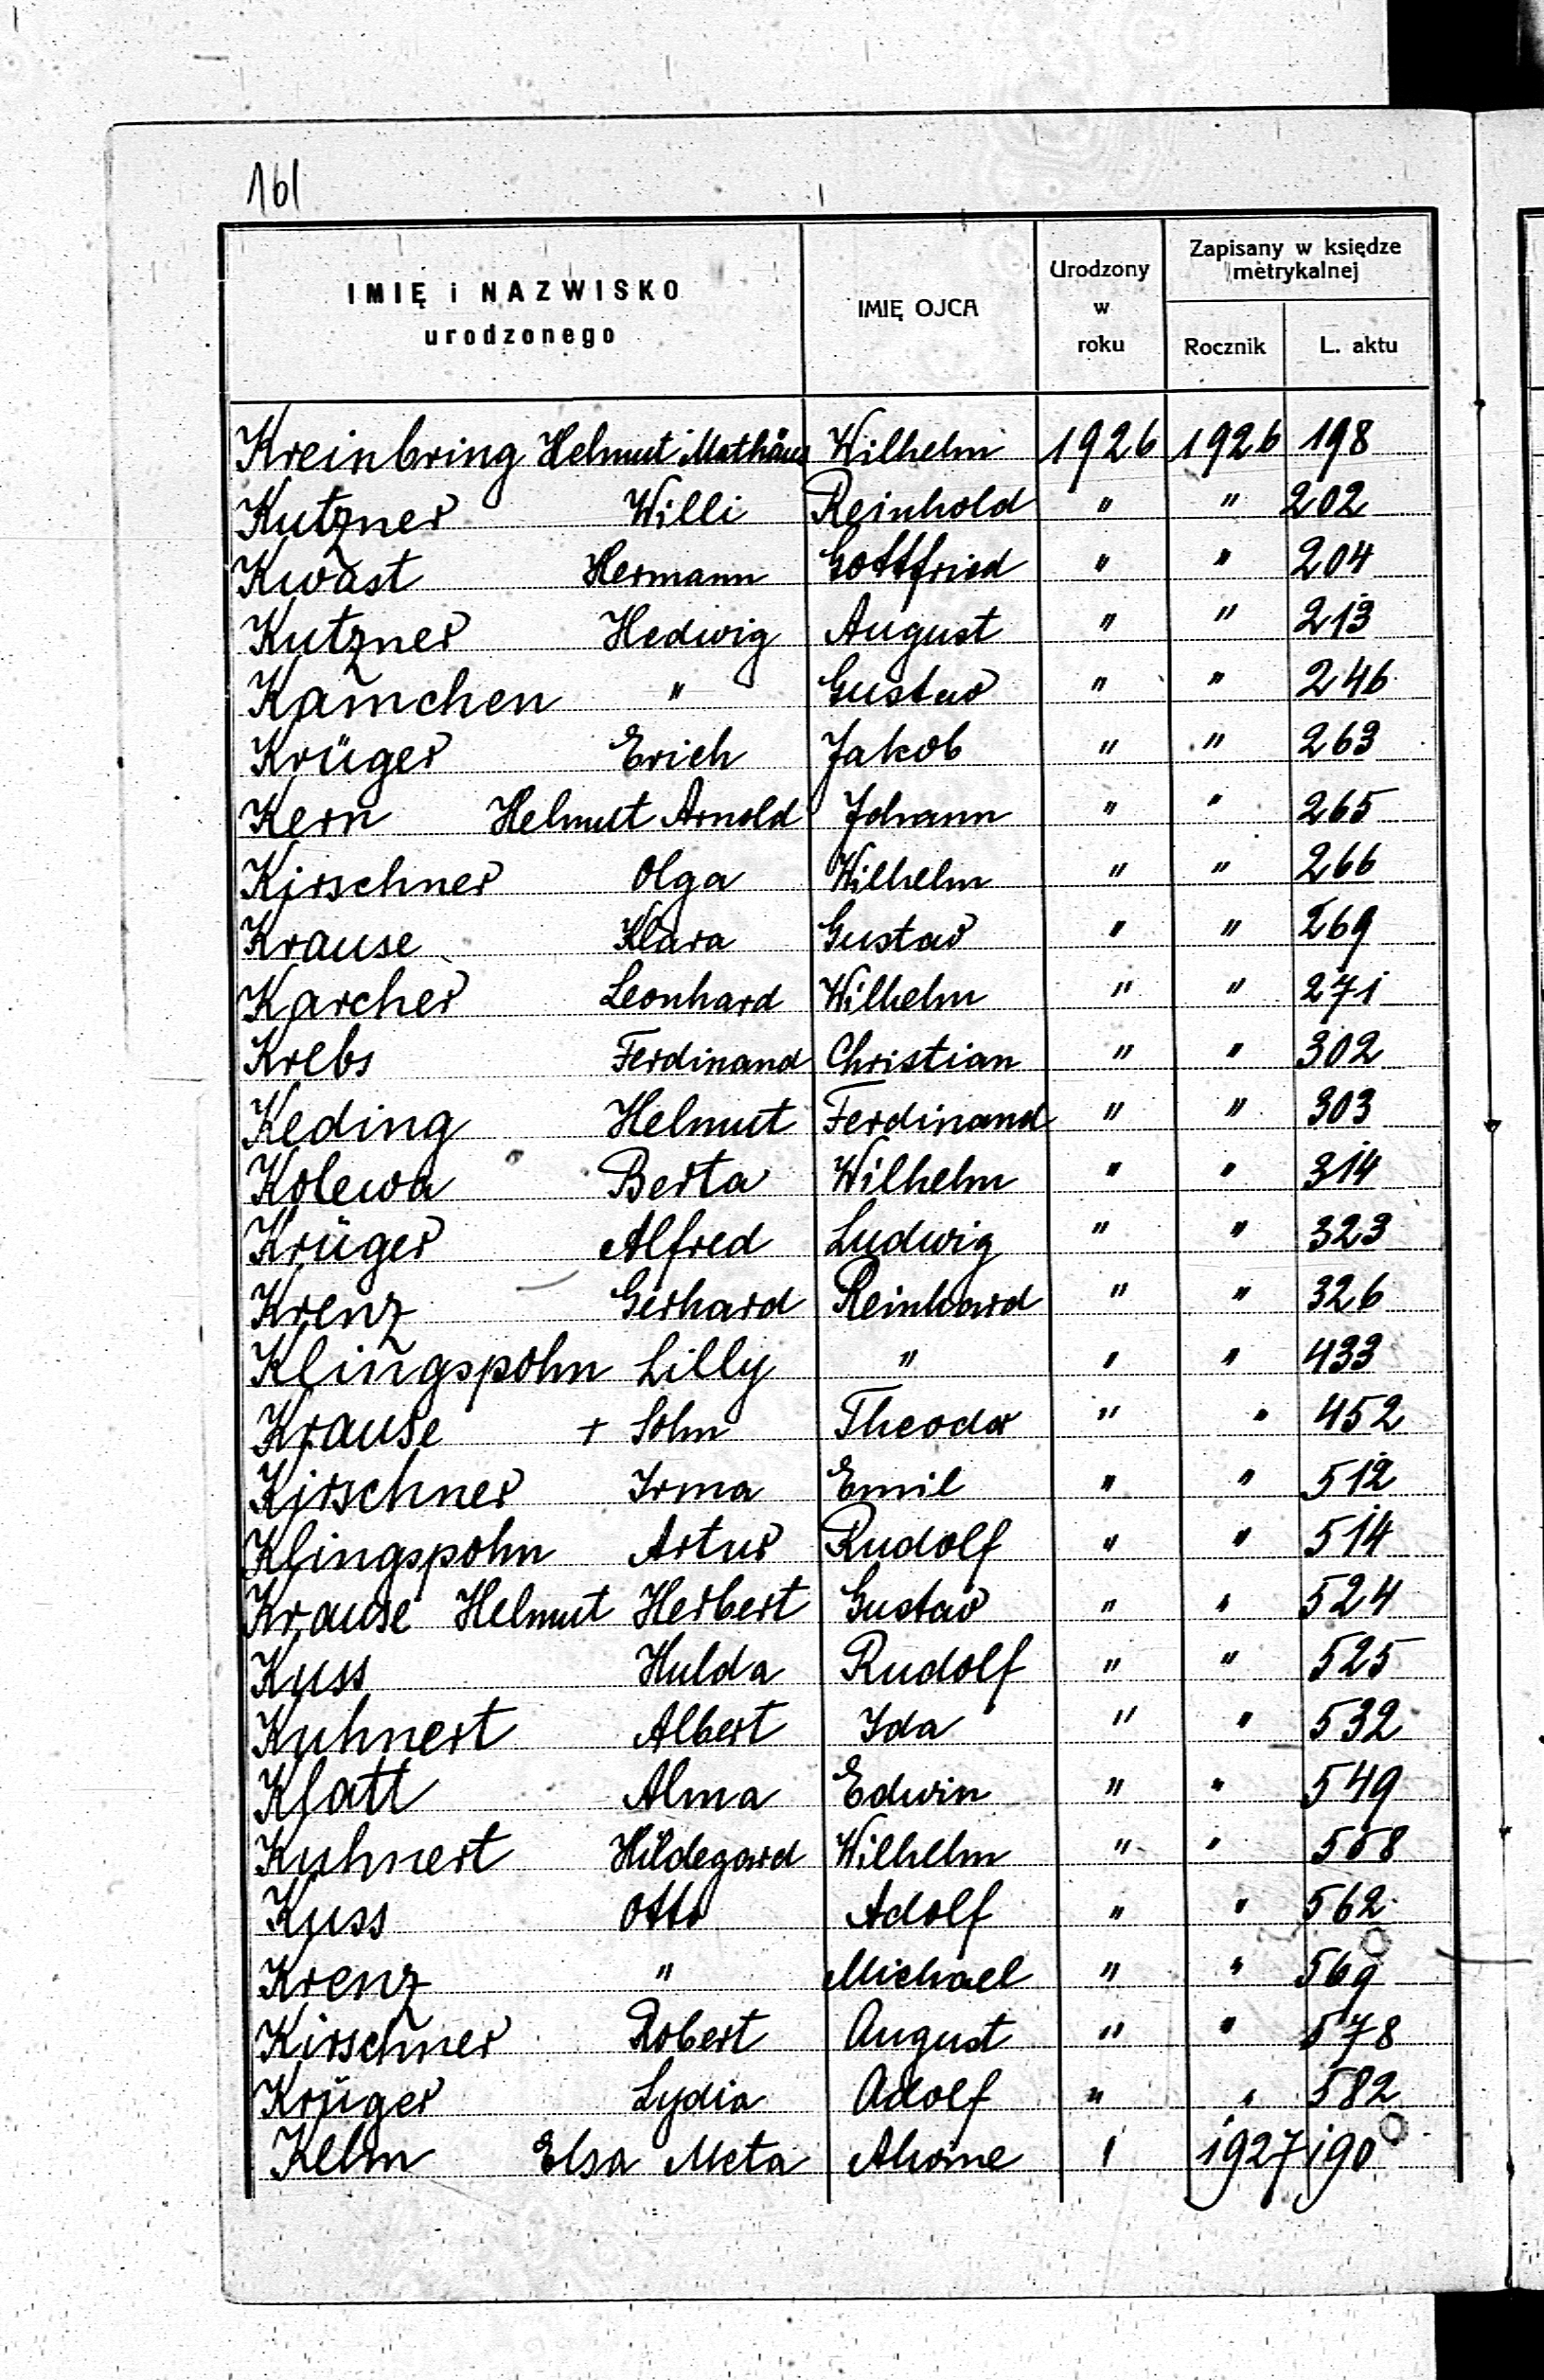 161
IMIĘ i NAZWISKO urodzonego IMIĘ OJCA Urodzony w roku Zapisany w księdze metrykalnej
Rocznik L. aktu
Kreinbring Helmut Mathäus Wilhelm 1926 1926 198
Kutzner Willi Reinhold " " 202
Kwast Hermann Gottfried " " 204
Kutzner Hedwig August " " 213
Kamchen " Gustav " " 246
Krüger Erich Jakob " " 263
Kern Helmut Arnold Johann " " 265
Kirschner Olga Wilhelm " " 266
Krause Klara Gustav " " 269
Karcher Leonhard Wilhelm " " 271
Krebs Ferdinand Christian " " 302
Keding Helmut Ferdinand " " 303
Kolewa Berta Wilhelm " " 314
Krüger Alfred Ludwig " " 323
Krenz Gerhard Reinhard " " 326
Klingspohn Lilly " " " 433
Krause + Sohn Theodor " " 452
Kirschner Irma Emil " " 512
Klingspohn Artur Rudolf " " 514
Krause Helmut Herbert Gustav " " 524
Kuss Hulda Rudolf " " 525
Kuhnert Albert Ida " " 532
Klatt Alma Edwin " " 549
Kuhnert Hildegard Wilhelm " " 558
Kuss Otto Adolf " " 562
Krenz " Michael " " 569
Kirschner Robert August " " 578
Krüger Lydia Adolf " " 582
Kelm Elsa Meta " 1927 190